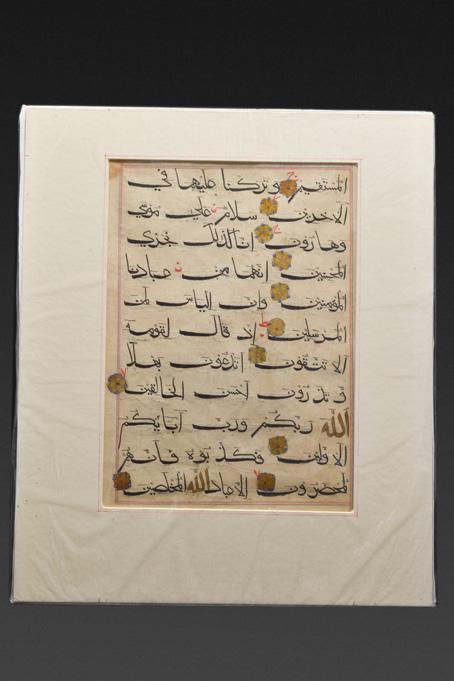 المستقيم وتركنا عليهما في
الاخرين سلام على موسى
وهارون انا كذلك نجزي
المحسنين انهما من عبادنا
المؤمنين وان الياس لمن
المرسلين اذ قال لقومه
الا تتقون اتدعون بعلا
وتذرون احسن الخالقين
الله ربكم ورب آبايكم
الاولين فكذبوه فانهم
لمحضرون الا عباد الله المخلصين